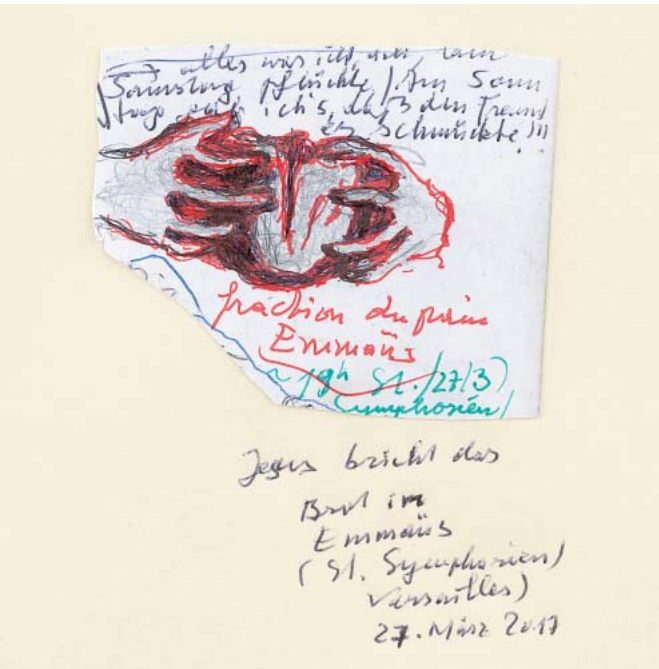 alles was ich
Samstag pflückte / Am Sonn
tag ich's, daß den Freund
es schmückte !!!
fraction du pain
Emmaüs
19h St. /27/3)
Symphorien/
Jesus bricht das
Brot in
Emmaüs
(St. Symphorien)
Versailles)
27. März 2017